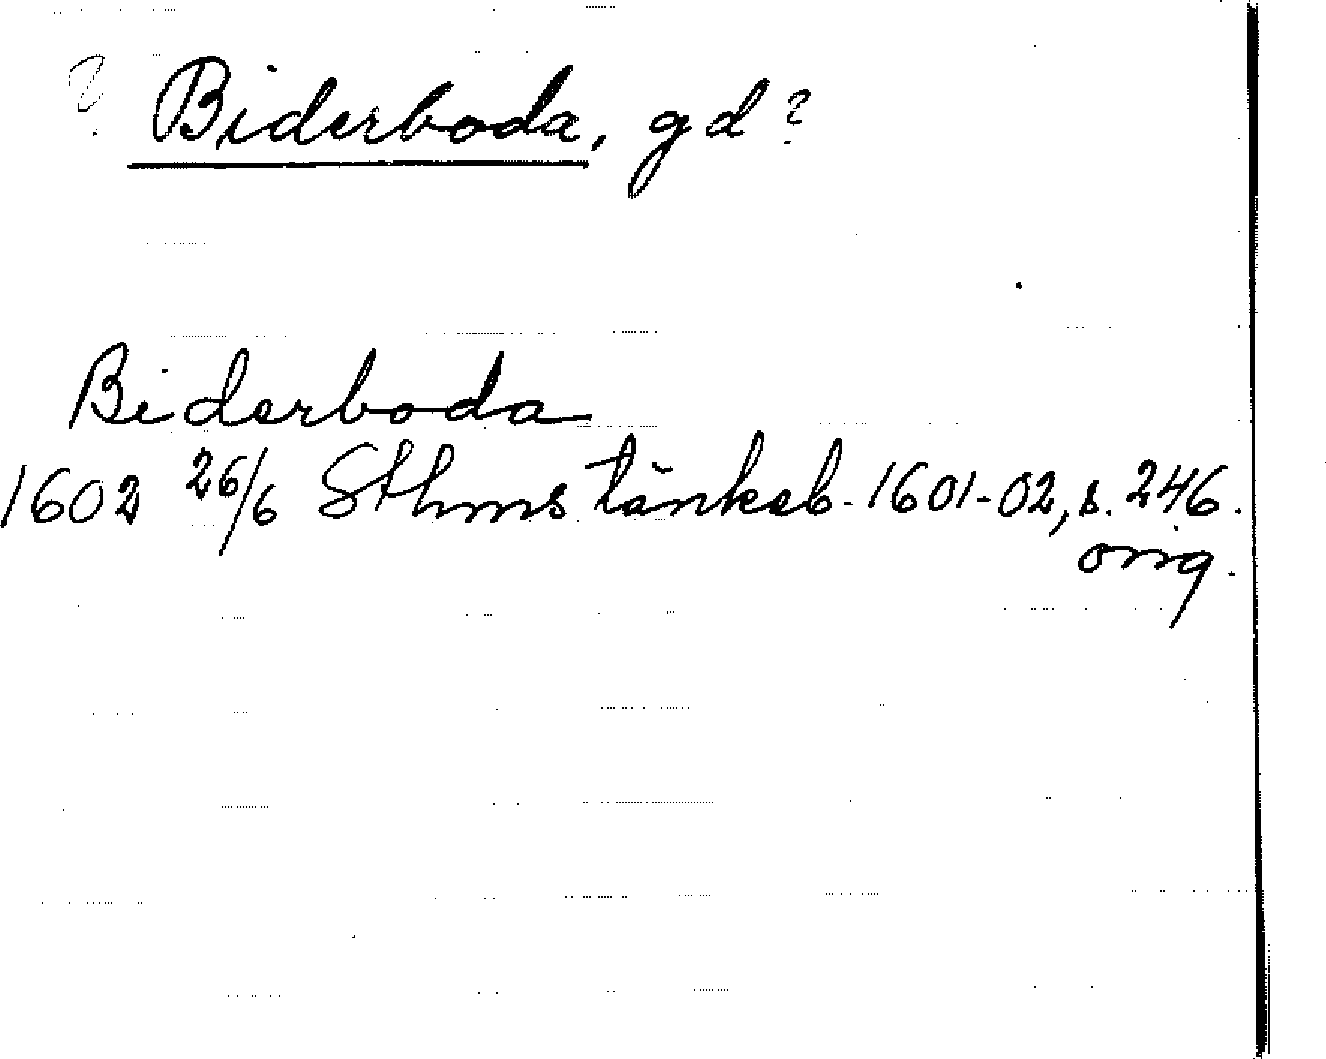 ? Biderboda, gd?
Biderboda
1602 26/6 Sthms tänkeb. 1601-02, s. 246.
orig.